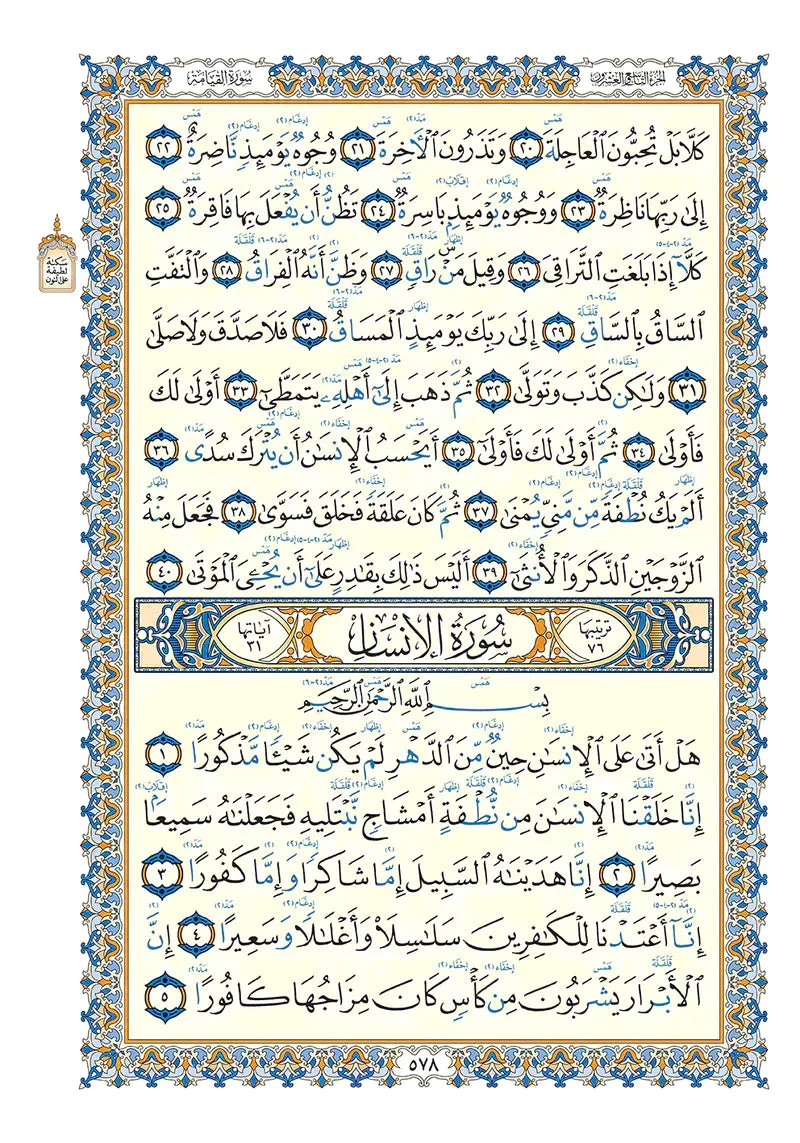 سورة القيامة
الجزء التاسع والعشرون
كَلَّا بَلْ تُحِبُّونَ ٱلْعَاجِلَةَ ٢٠ وَتَذَرُونَ ٱلْأَخِرَةَ ٢١ وُجُوهٌ يَوْمَئِذٍ نَّاضِرَةٌ ٢٢
إِلَىٰ رَبِّهَا نَاظِرَةٌ ٢٣ وَوُجُوهٌ يَوْمَئِذٍ بَاسِرَةٌ ٢٤ تَظُنُّ أَن يُفْعَلَ بِهَا فَاقِرَةٌ ٢٥
سكتة
لطيفة
على النون
كَلَّآ إِذَا بَلَغَتِ ٱلتَّرَاقِىَ ٢٦ وَقِيلَ مَنْ رَاقٍ ٢٧ وَظَنَّ أَنَّهُ ٱلْفِرَاقُ ٢٨ وَٱلْتَفَّتِ
ٱلسَّاقُ بِٱلسَّاقِ ٢٩ إِلَىٰ رَبِّكَ يَوْمَئِذٍ ٱلْمَسَاقُ ٣٠ فَلَا صَدَّقَ وَلَا صَلَّىٰ
٣١ وَلَٰكِن كَذَّبَ وَتَوَلَّىٰ ٣٢ ثُمَّ ذَهَبَ إِلَىٰٓ أَهْلِهِۦ يَتَمَطَّىٰٓ ٣٣ أَوْلَىٰ لَكَ
فَأَوْلَىٰ ٣٤ ثُمَّ أَوْلَىٰ لَكَ فَأَوْلَىٰٓ ٣٥ أَيَحْسَبُ ٱلْإِنسَٰنُ أَن يُتْرَكَ سُدًى ٣٦
أَلَمْ يَكُ نُطْفَةً مِّن مَّنِىٍّ يُمْنَىٰ ٣٧ ثُمَّ كَانَ عَلَقَةً فَخَلَقَ فَسَوَّىٰ ٣٨ فَجَعَلَ مِنْهُ
ٱلزَّوْجَيْنِ ٱلذَّكَرَ وَٱلْأُنثَىٰٓ ٣٩ أَلَيْسَ ذَٰلِكَ بِقَٰدِرٍ عَلَىٰٓ أَن يُحْـِۧىَ ٱلْمَوْتَىٰ ٤٠
ترتيبها ٧٦ سُورَةُ الإِنسَانِ آياتها ٣١
بِسْمِ ٱللَّهِ ٱلرَّحْمَٰنِ ٱلرَّحِيمِ
هَلْ أَتَىٰ عَلَى ٱلْإِنسَٰنِ حِينٌ مِّنَ ٱلدَّهْرِ لَمْ يَكُن شَيْـًٔا مَّذْكُورًا ١
إِنَّا خَلَقْنَا ٱلْإِنسَٰنَ مِن نُّطْفَةٍ أَمْشَاجٍ نَّبْتَلِيهِ فَجَعَلْنَٰهُ سَمِيعًۢا
بَصِيرًا ٢ إِنَّا هَدَيْنَٰهُ ٱلسَّبِيلَ إِمَّا شَاكِرًا وَإِمَّا كَفُورًا ٣
إِنَّآ أَعْتَدْنَا لِلْكَٰفِرِينَ سَلَٰسِلَا۟ وَأَغْلَٰلًا وَسَعِيرًا ٤ إِنَّ
ٱلْأَبْرَارَ يَشْرَبُونَ مِن كَأْسٍ كَانَ مِزَاجُهَا كَافُورًا ٥
٥٧٨